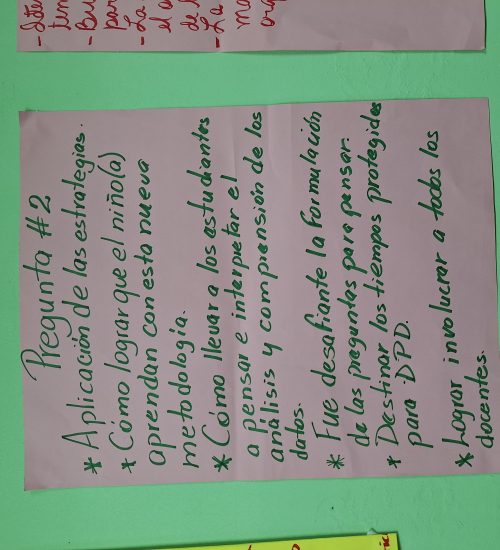 Pregunta #2
* Aplicación de las estrategias.
* Cómo lograr que el niño(a)
aprendan con esta nueva
metodología.
* Cómo llevar a los estudiantes
a pensar e interpretar el
análisis y comprensión de los
datos.
* Fue desafiante la formulación
de las preguntas para pensar.
* Destinar los tiempos protegidos
para DPD.
* Lograr involucrar a todos los
docentes.